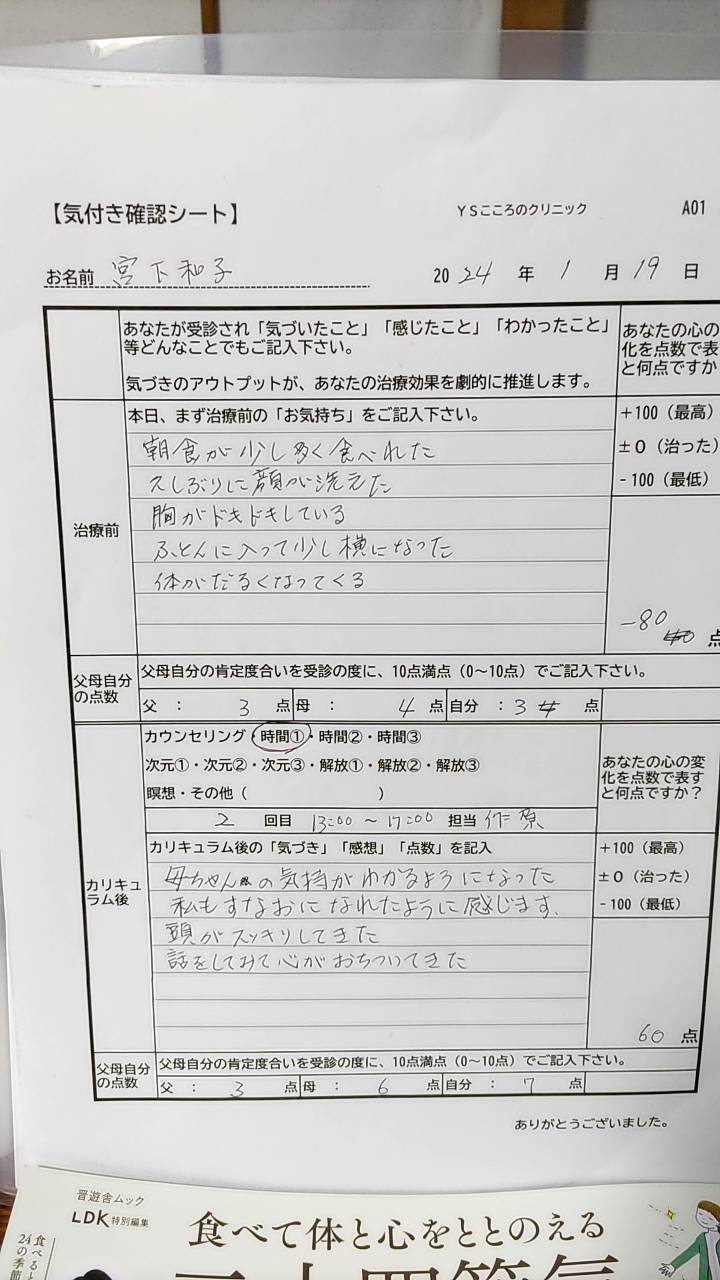 【気付き確認シート】 YSこころのクリニック A01
お名前 宮下和子 2024年1月19日
あなたが受診され「気づいたこと」「感じたこと」「わかったこと」
等どんなことでもご記入下さい。
気づきのアウトプットが、あなたの治療効果を劇的に推進します。
あなたの心の
化を点数で表
と何点ですか
治療前
本日、まず治療前の「お気持ち」をご記入下さい。
朝食が少し多く食べれた
久しぶりに顔が洗えた
胸がドキドキしている
ふとんに入って少し横になった
体がだるくなってくる
+100（最高）
±0（治った）
-100（最低）
-80 点
父母自分
の点数
父母自分の肯定度合いを受診の度に、10点満点（0～10点）でご記入下さい。
父 ： 3 点 母 ： 4 点 自分 ： 3 点
カリキュ
ラム後
カウンセリング・時間①・時間②・時間③
次元①・次元②・次元③・解放①・解放②・解放③
瞑想・その他（ ）
2 回目 13:00 ～ 17:00 担当 作原
あなたの心の変
化を点数で表す
と何点ですか？
カリキュラム後の「気づき」「感想」「点数」を記入
母ちゃんの気持がわかるようになった
私もすなおになれたように感じます。
頭がスッキリしてきた
話をしてみて心がおちついてきた
+100（最高）
±0（治った）
-100（最低）
60 点
父母自分
の点数
父母自分の肯定度合いを受診の度に、10点満点（0～10点）でご記入下さい。
父 ： 3 点 母 ： 6 点 自分 ： 7 点
ありがとうございました。
晋遊舎ムック
LDK特別編集
食べると
24の季節
食べて体と心をととのえる
二十四節気